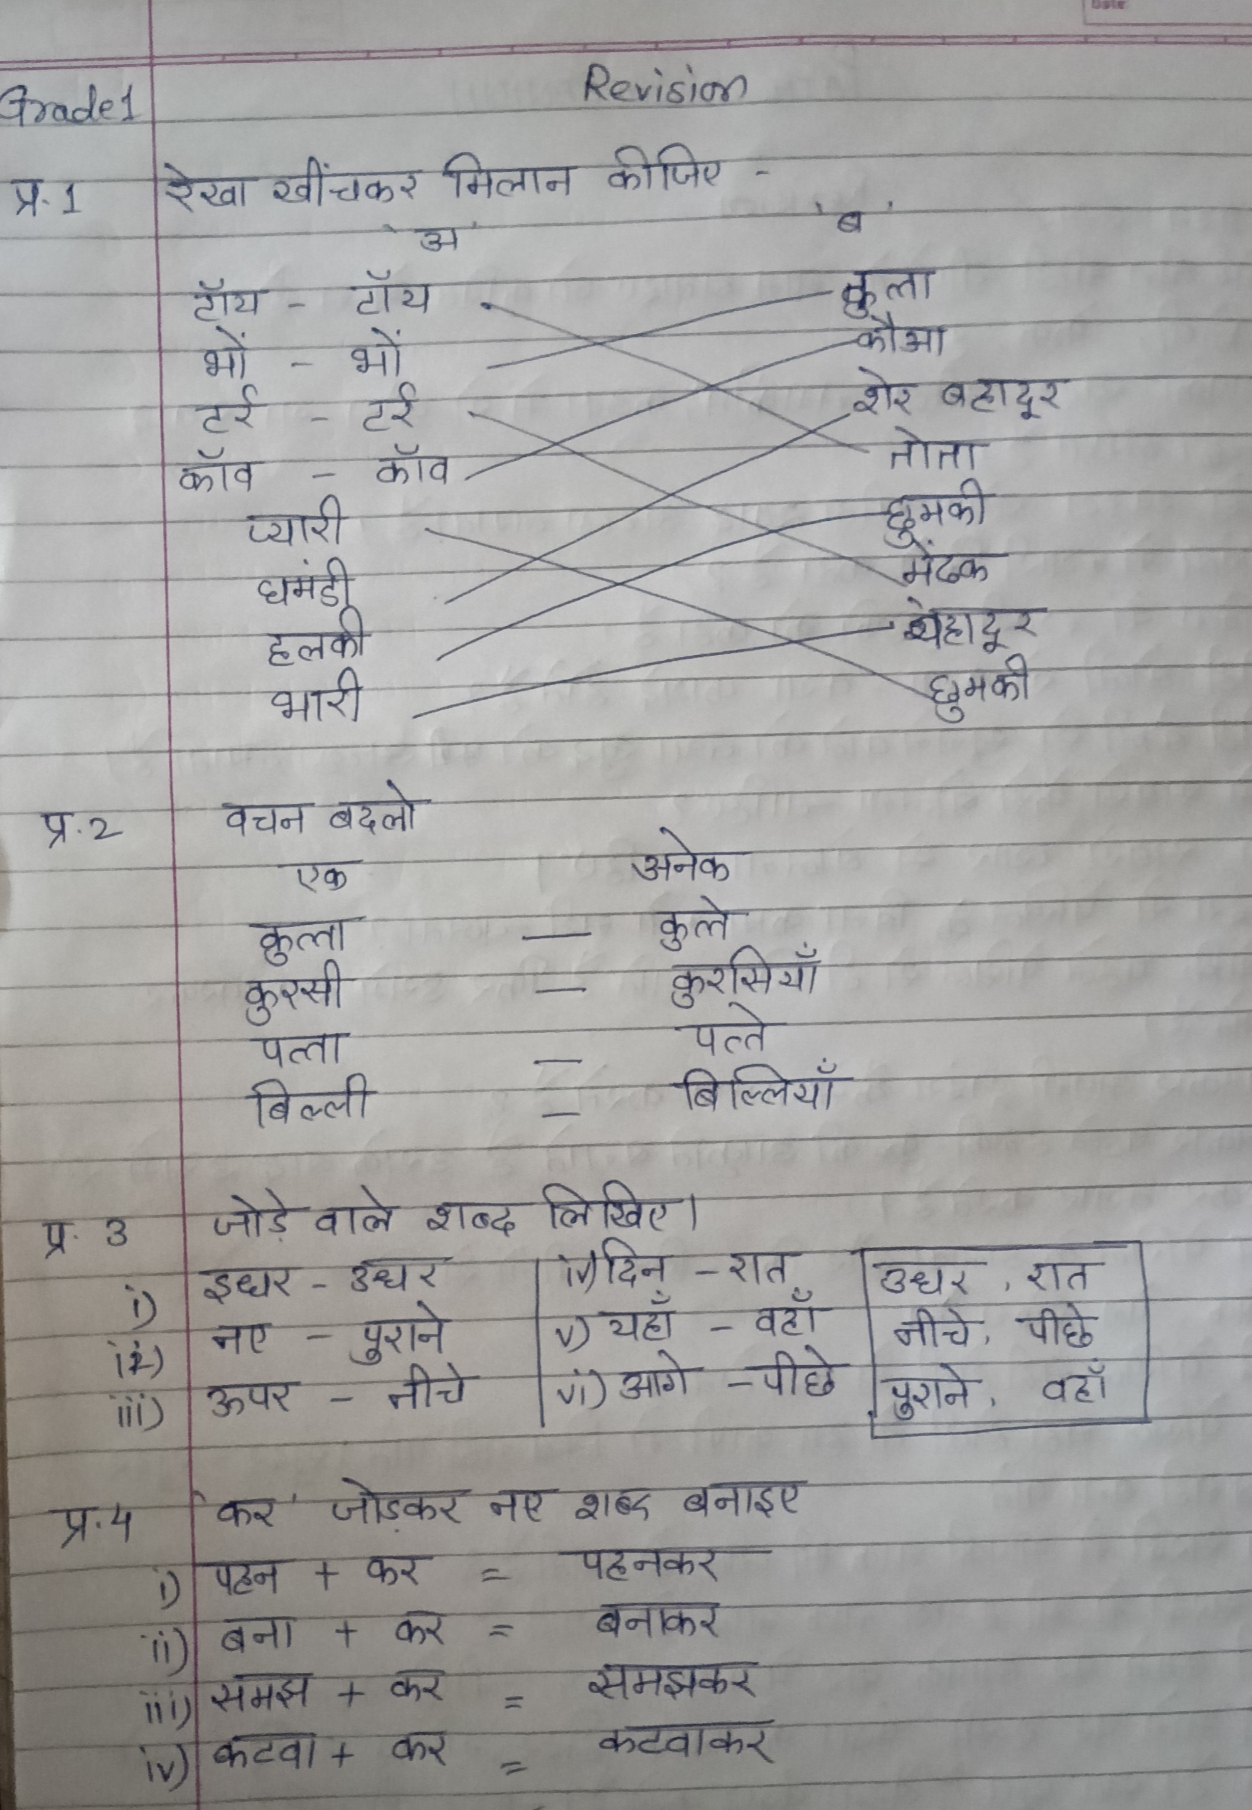 Date
Revision
Grade 1
प्र.1 रेखा खींचकर मिलान कीजिए -
'अ' 'ब'
टॉय - टॉय कुत्ता
भों - भों कौआ
टर्र - टर्र शेर बहादूर
कॉव - कॉव तोता
प्यारी छुमकी
घमंडी मेंढक
हलकी बहादूर
भारी छुमकी
प्र.2 वचन बदलो
एक अनेक
कुत्ता — कुत्ते
कुरसी — कुरसियाँ
पत्ता — पत्ते
बिल्ली — बिल्लियाँ
प्र. 3 जोड़े वाले शब्द लिखिए।
i) इधर - उधर iv) दिन - रात उधर, रात
ii) नए - पुराने v) यहाँ - वहाँ नीचे, पीछे
iii) ऊपर - नीचे vi) आगे - पीछे पुराने, वहाँ
प्र.4 'कर' जोड़कर नए शब्द बनाइए
i) पहन + कर = पहनकर
ii) बना + कर = बनाकर
iii) समझ + कर = समझकर
iv) कटवा + कर = कटवाकर